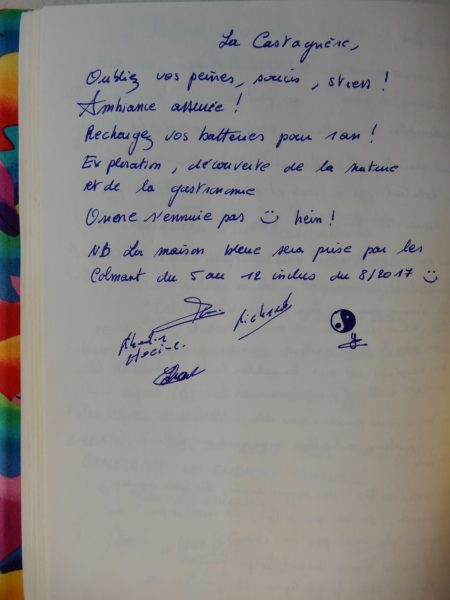 La Castagnère,
Oubliez vos peines, soucis, stress !
Ambiance assurée !
Rechargez vos batteries pour 1 an !
Exploration, découverte de la nature
et de la gastronomie
On ne s'ennuie pas ☺ hein !
NB La maison bleue sera prise par les
Colmant du 5 au 12 inclus du 8/2017 ☺
Richard